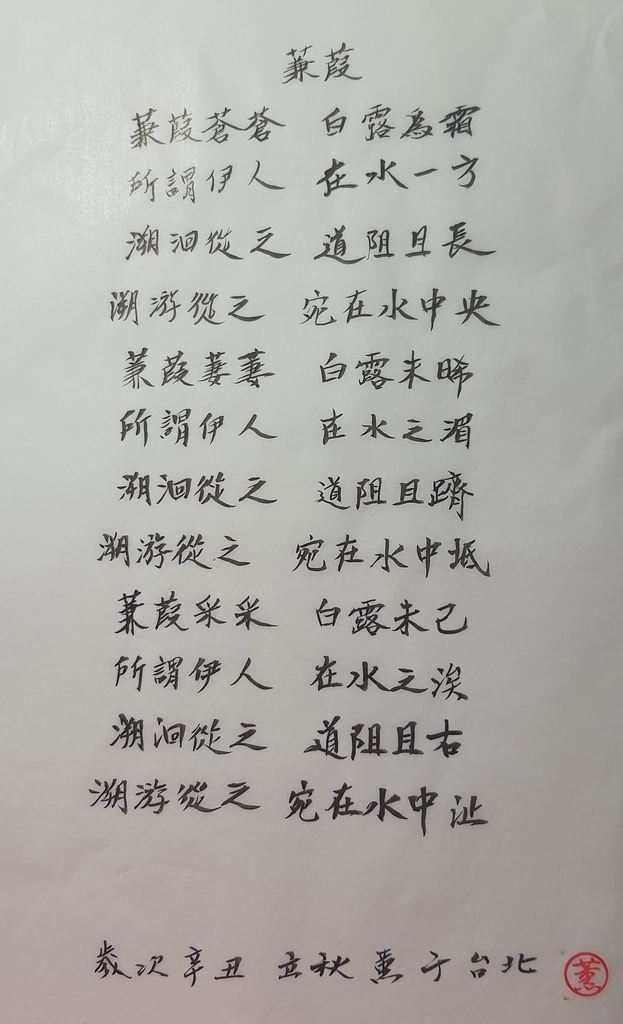 蒹葭
蒹葭蒼蒼 白露為霜
所謂伊人 在水一方
溯洄從之 道阻且長
溯游從之 宛在水中央
蒹葭萋萋 白露未晞
所謂伊人 在水之湄
溯洄從之 道阻且躋
溯游從之 宛在水中坻
蒹葭采采 白露未已
所謂伊人 在水之涘
溯洄從之 道阻且右
溯游從之 宛在水中沚
歲次辛丑 立秋 薰于台北
薰